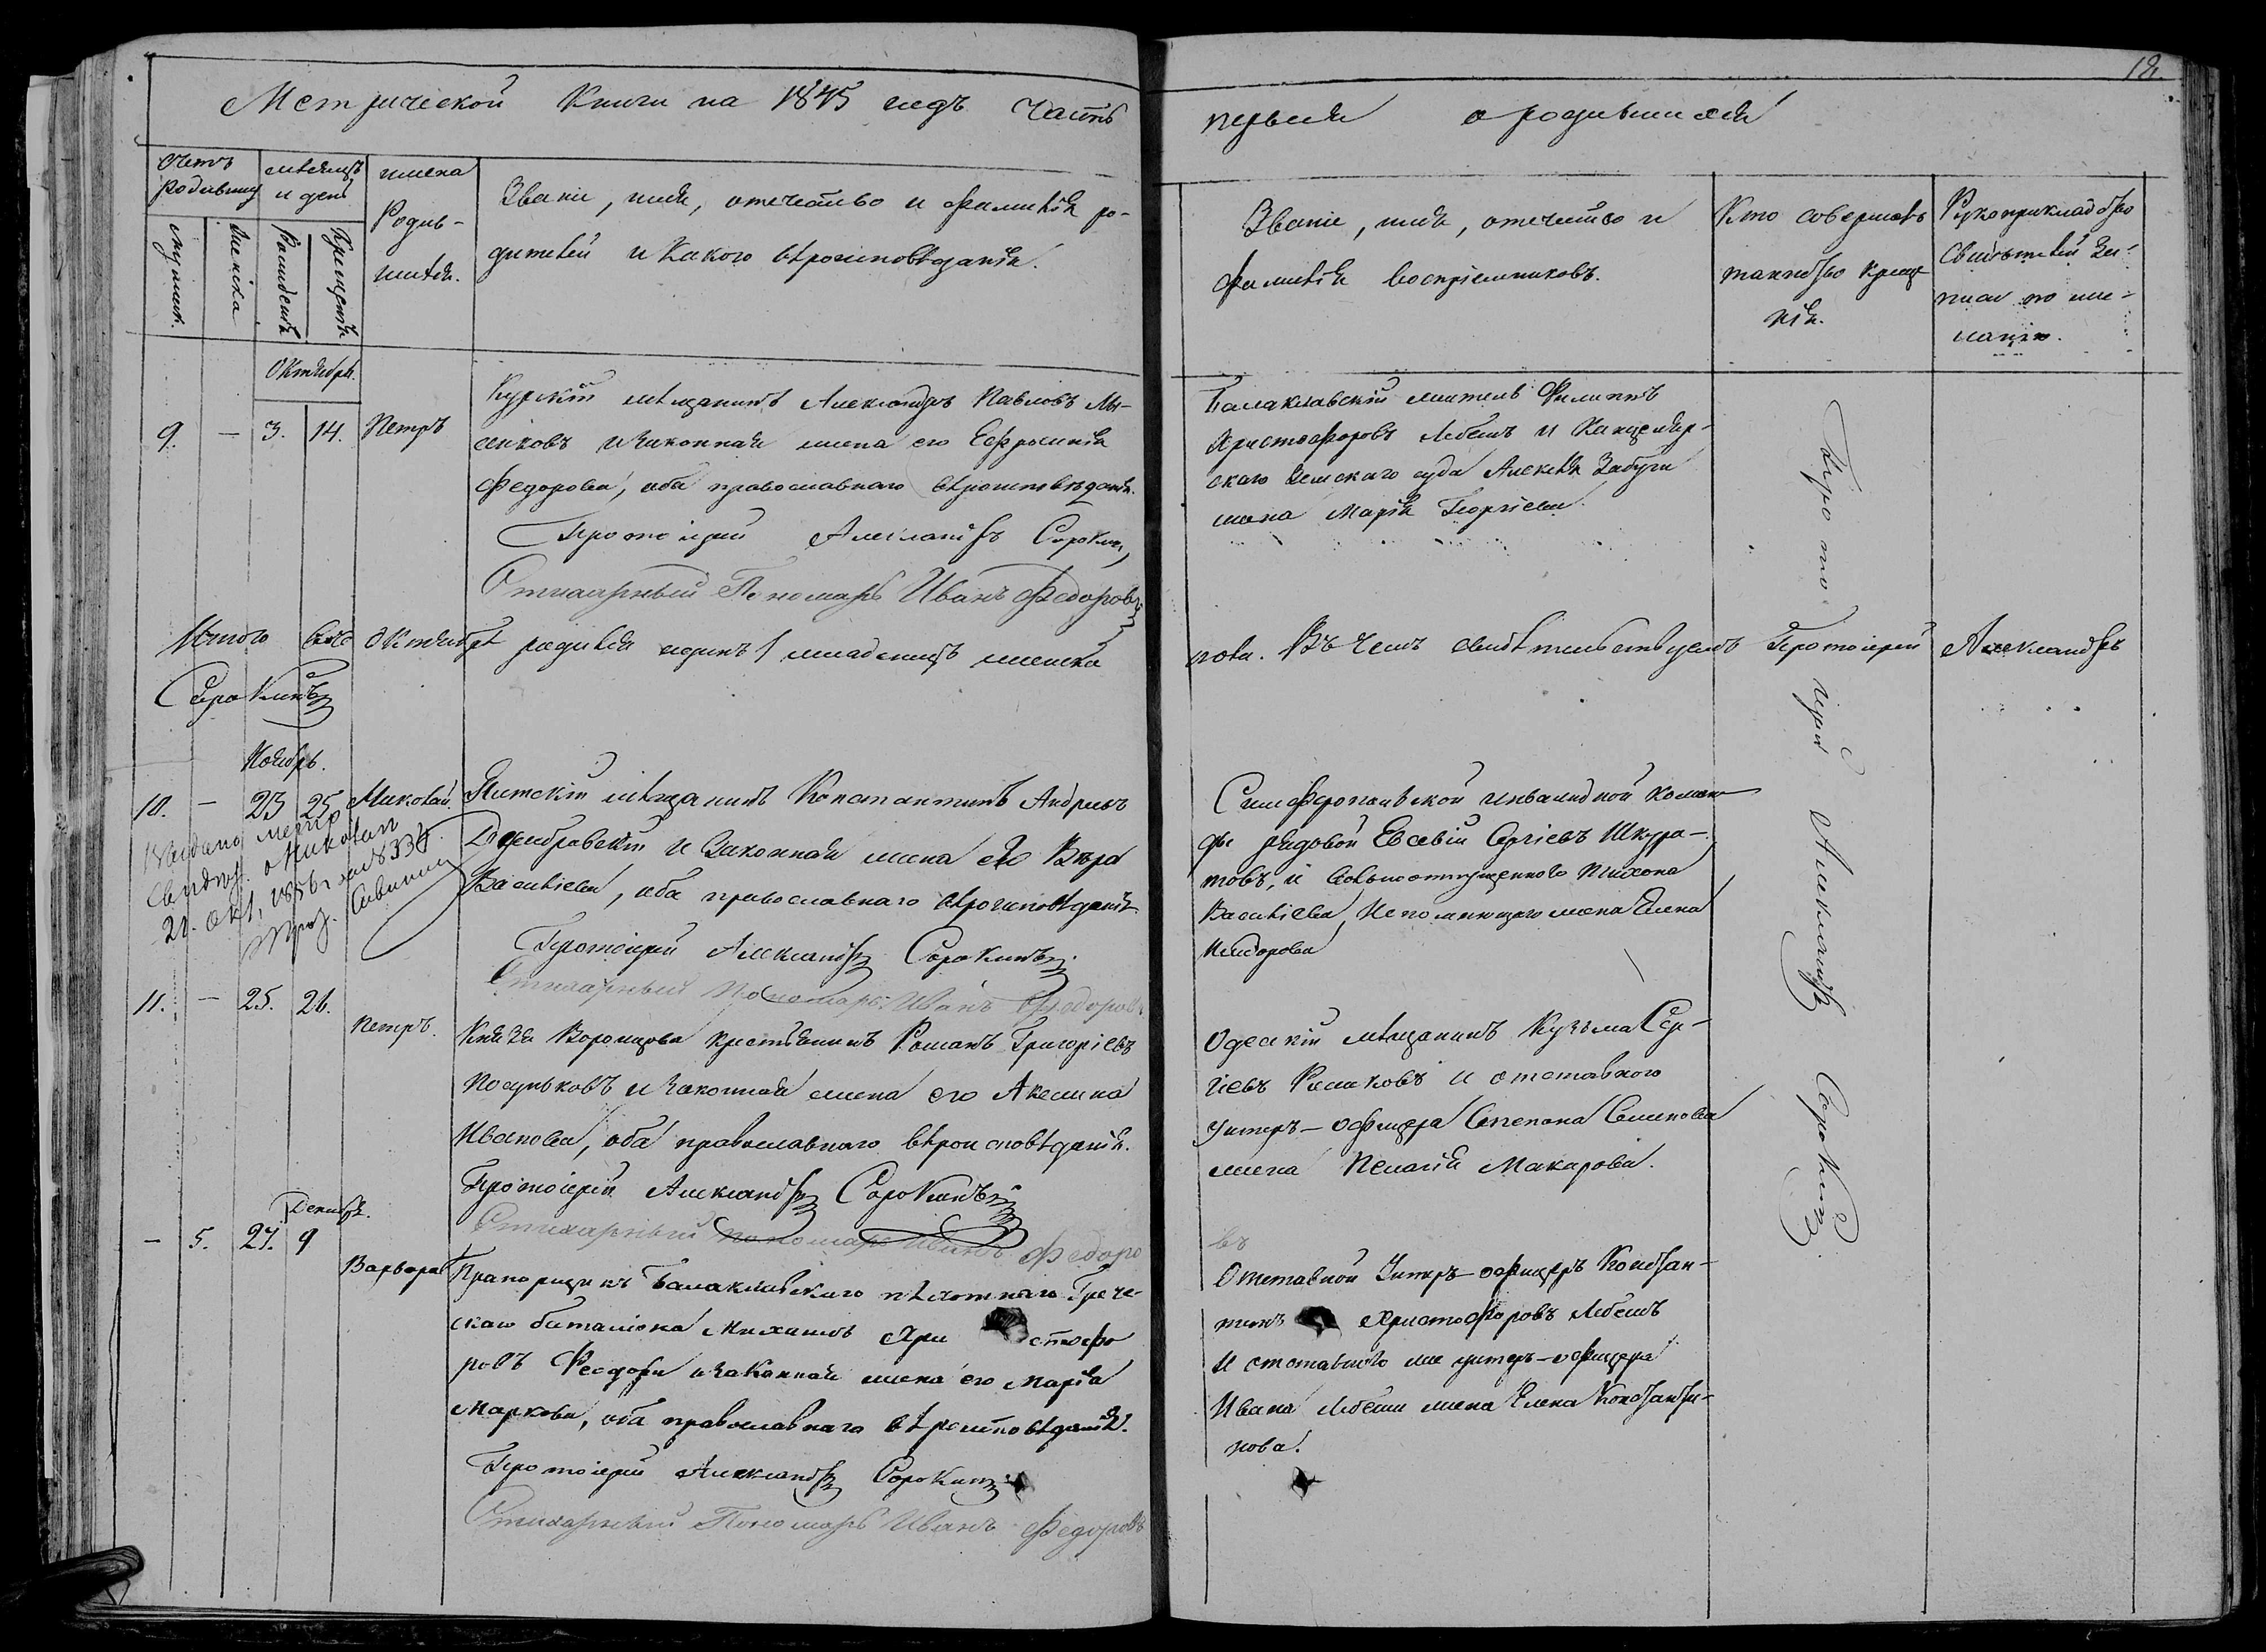 Метрической Книги на 1845 годъ Часть
первая о родившихся
18.
Счетъ родившихся
мѣсяцъ и день
имена Родившихся.
Званіе, имя, отечество и фамилія ро-
дителей и Какого вѣроисповѣданія.
Званіе, имя, отечество и
фамилія воспріемниковъ.
Кто совершалъ
таинство креще
нія.
Рукоприкладство
Свидѣтелей за-
писи по же-
ланію.
мужеска.
женска
Рожденія
Крещенія
Октябрь.
9. — 3. 14. Петръ
Курскій мѣщанинъ Александръ Павловъ
и законная жена его Ефросинія
Федорова, оба православнаго вѣроисповѣданія.
Протоіерей Александръ Сорокинъ
Стихарный Пономарь Иванъ Федоровъ
Балаклавскій житель Филиппъ
Христофоровъ и
скаго Земскаго суда Алексѣя
жена Марія Георгіева.
Итого въ Октябрѣ родился одинъ 1 младенецъ мужеска
пола. Въ чемъ свидѣтельствуемъ Протоіерей Александръ
Сорокинъ
Ноябрь.
10. — 23 25 Николай.
Ялтскій мѣщанинъ Константинъ Андреевъ
Домбровскій и Законная жена его Вѣра
Васильева, оба православнаго вѣроисповѣданія.
Протоіерей Александръ Сорокинъ
Стихарный Пономарь Иванъ Федоровъ
Выдано метр.
свидѣт. о Николаѣ
21. Окт. 1856 г. за № 334
Симферопольской инвалидной коман
ды рядовой Евсевій Сергіевъ Шкура-
товъ, и вольноотпущенного Тихона
Васильева, Непомнющаго жена Елена
11. — 25. 26.
Петръ.
Князя Воронцова крестьянинъ Романъ Григоріевъ
Посуньковъ и законная жена его Акелина
Иванова, оба православнаго вѣроисповѣданія.
Протоіерей Александръ Сорокинъ
Стихарный пономарь Иванъ Федоро
въ
Одескій мѣщанинъ Кузьма Сер-
гіевъ и отставного
унтеръ-офицера Степана Семенова
жена Пелагія Макарова.
Декабрь.
— 5. 27. 9
Варвара
Прапорщикъ Балаклавскаго пѣхотнаго Грече-
скаго баталіона Михаилъ Хри стофо
ровъ Феодори и законная жена его Марія
Маркова, оба православнаго вѣроисповѣданія.
Протоіерей Александръ Сорокинъ
Стихарный Пономарь Иванъ Федоровъ
Отставной Унтеръ-офицеръ Констан-
тинъ Христофоровъ
и отставного же унтеръ-офицера
Ивана жена Елена Константи-
нова.
Протоіерей Александръ Сорокинъ